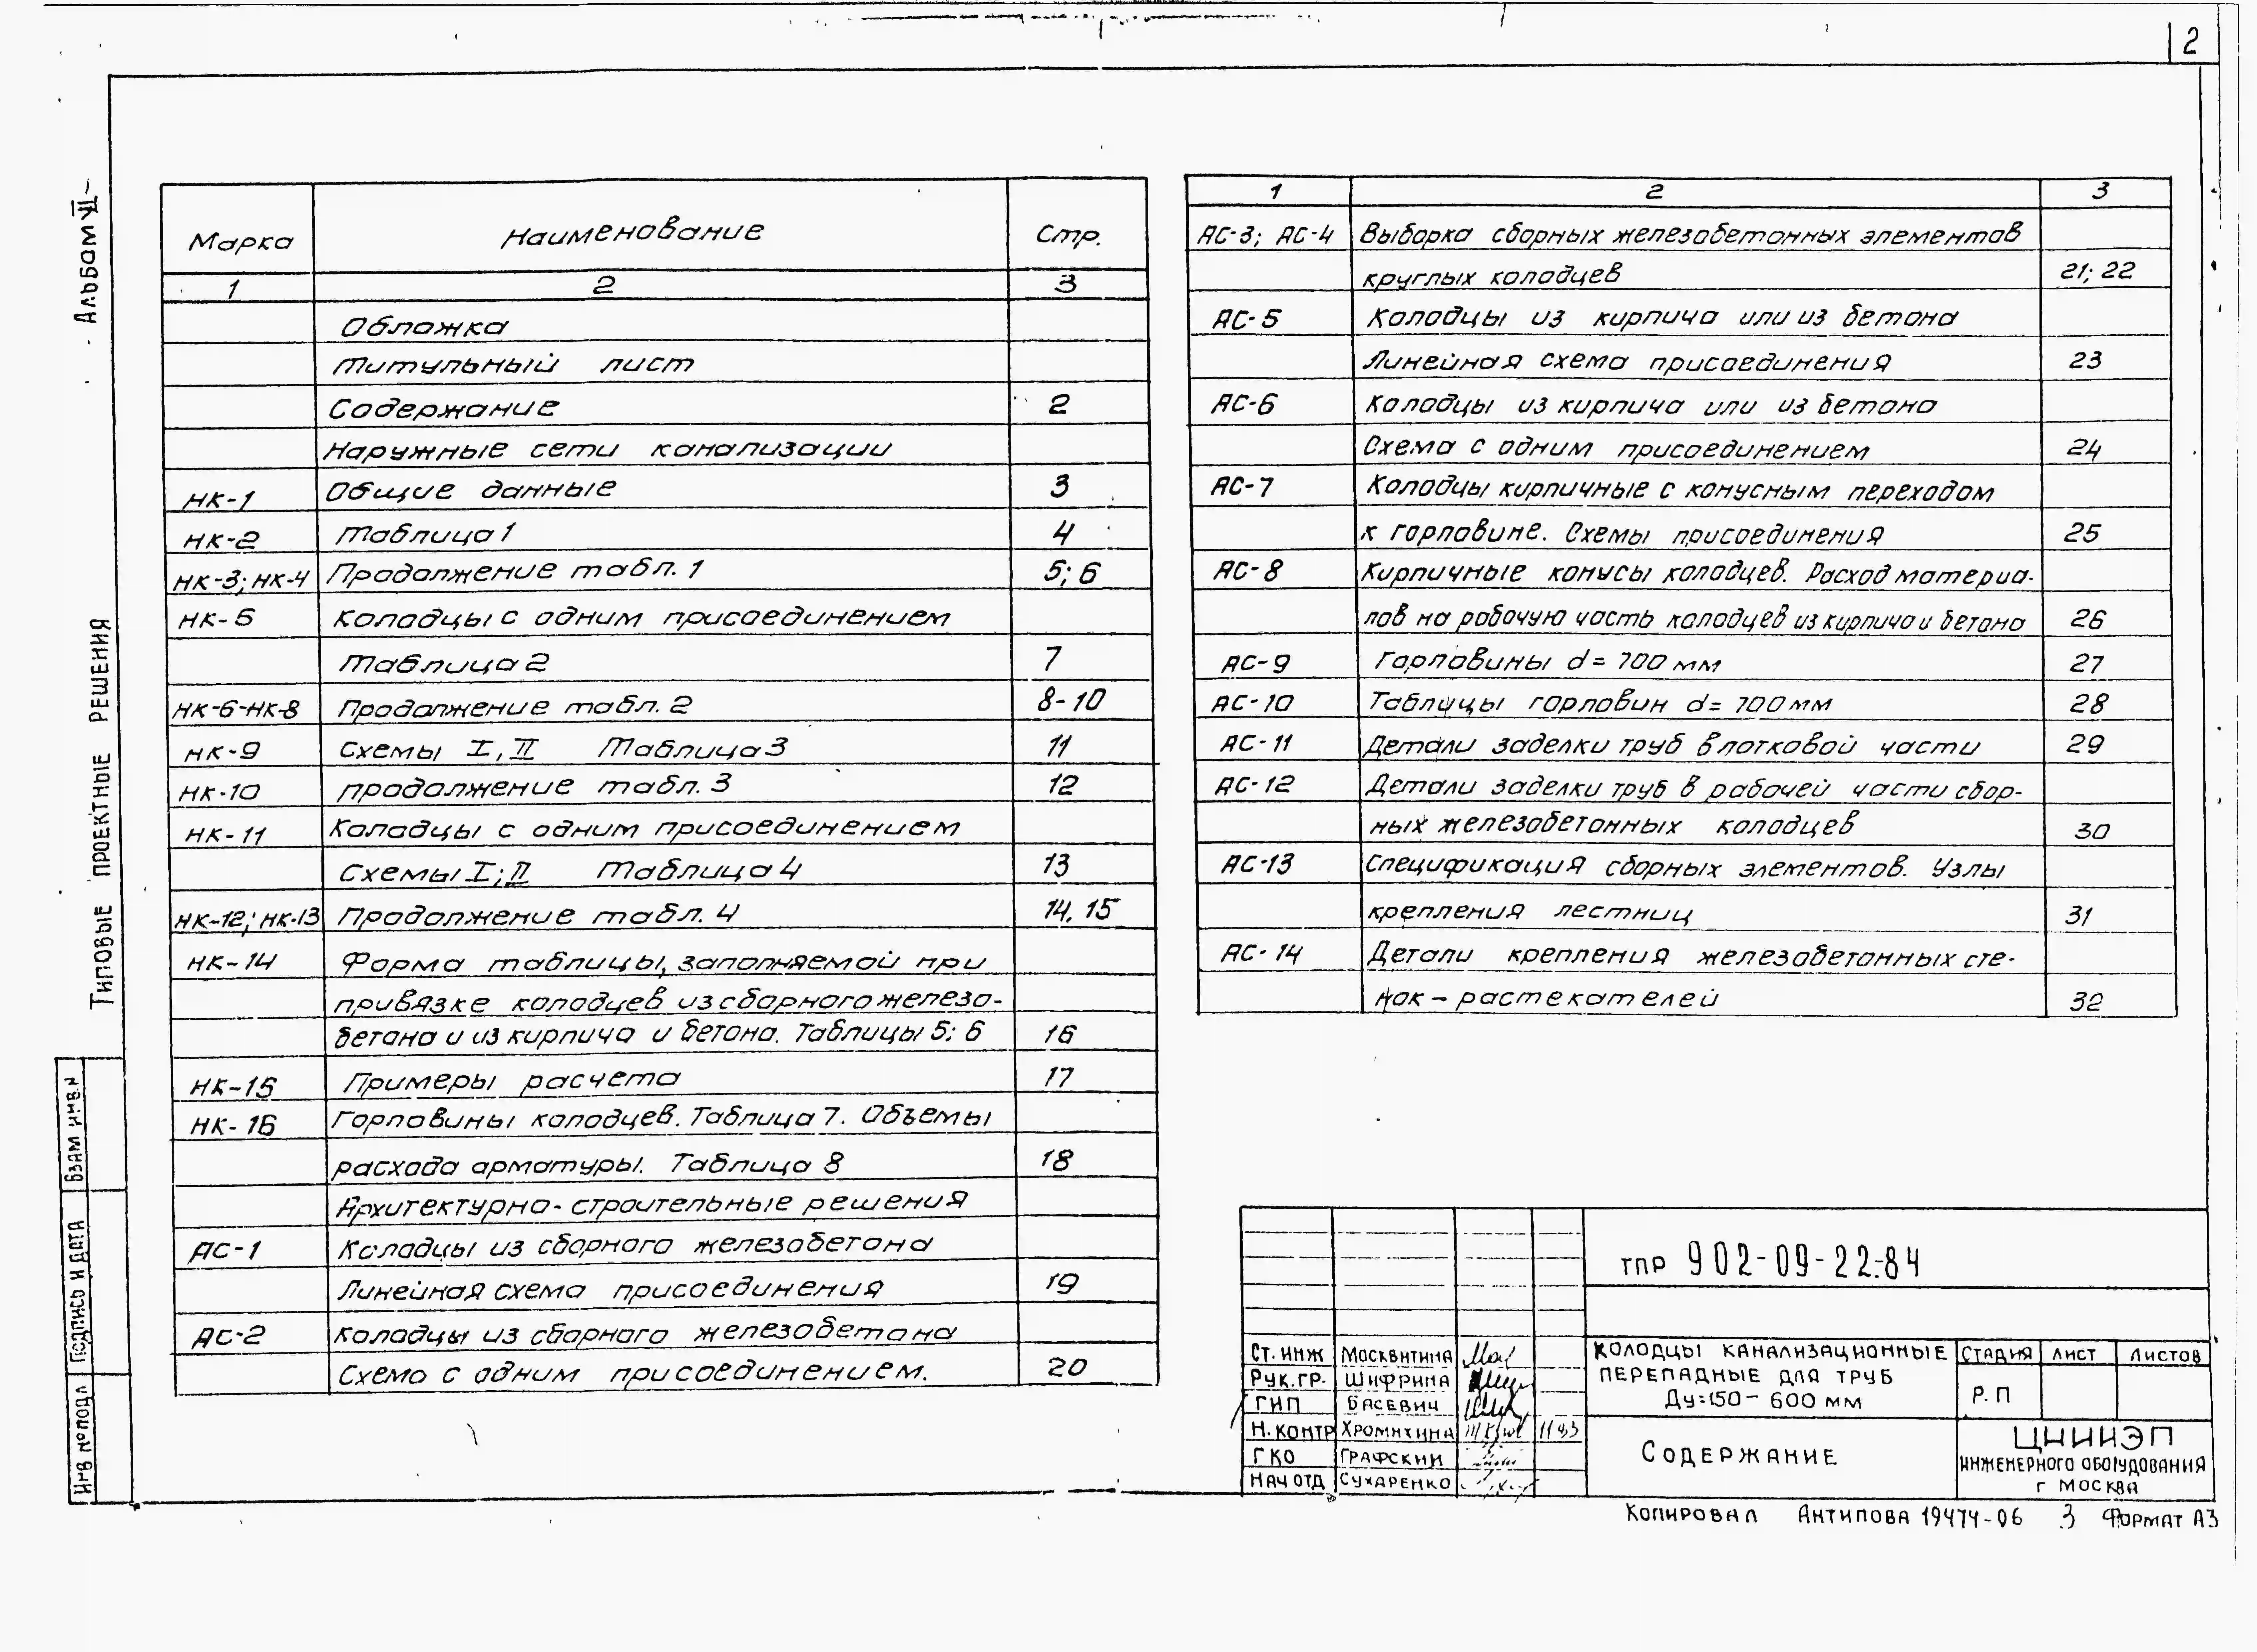 2
Альбом VI
Типовые проектные решения
Взам инв.н
Подпись и дата
Инв №подл
Марка Наименование Стр.
1 2 3
Обложка
Титульный лист
Содержание 2
Наружные сети канализации
НК-1 Общие данные 3
НК-2 Таблица 1 4
НК-3; НК-4 Продолжение табл. 1 5; 6
НК-5 Колодцы с одним присоединением
Таблица 2 7
НК-6-НК-8 Продолжение табл. 2 8-10
НК-9 Схемы I, II Таблица 3 11
НК-10 продолжение табл. 3 12
НК-11 Колодцы с одним присоединением
Схемы I; II Таблица 4 13
НК-12; НК-13 Продолжение табл. 4 14, 15
НК-14 Форма таблицы, заполняемой при
привязке колодцев из сборного железо-
бетона и из кирпича и бетона. Таблицы 5; 6 16
НК-15 Примеры расчета 17
НК-16 Горловины колодцев. Таблица 7. Объемы
расхода арматуры. Таблица 8 18
Архитектурно-строительные решения
АС-1 Колодцы из сборного железобетона
Линейная схема присоединения 19
АС-2 Колодцы из сборного железобетона
Схема с одним присоединением. 20
1 2 3
АС-3; АС-4 Выборка сборных железобетонных элементов
круглых колодцев 21; 22
АС-5 Колодцы из кирпича или из бетона
Линейная схема присоединения 23
АС-6 Колодцы из кирпича или из бетона
Схема с одним присоединением 24
АС-7 Колодцы кирпичные с конусным переходом
к горловине. Схемы присоединения 25
АС-8 Кирпичные конусы колодцев. Расход материа-
лов на рабочую часть колодцев из кирпича и бетона 26
АС-9 Горловины d= 700 мм 27
АС-10 Таблицы горловин d= 700 мм 28
АС-11 Детали заделки труб в лотковой части 29
АС-12 Детали заделки труб в рабочей части сбор-
ных железобетонных колодцев 30
АС-13 Спецификация сборных элементов. Узлы
крепления лестниц 31
АС-14 Детали крепления железобетонных сте-
нок - растекателей 32
тпр 902-09-22.84
Ст. инж Москвитина
Рук.гр. Шифрина
ГИП Басевич
Н. контр Хромихина 11 83
ГКО Графский
Нач отд Сухаренко
Колодцы канализационные
перепадные для труб
Ду=150- 600 мм
Стадия Лист Листов
Р. П
Содержание
ЦНИИЭП
инженерного оборудования
г Москва
Копировал Антипова 19474-06 3 Формат А3